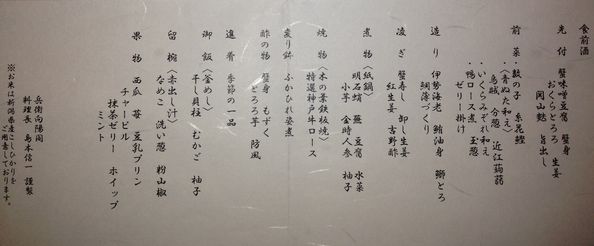 食前酒
先付 蟹味噌豆腐 蟹身
おくらとろろ 生姜
岡山麩 旨出し
前菜・数の子 糸花鰹
・〈青ぬた和え〉
烏賊 分葱 近江蒟蒻
・いくらみぞれ和え
・鴨ロース煮 玉葱
ゼリー掛け
造り 伊勢海老 鮪油身 鰤とろ
綱薄づくり
凌ぎ 蟹寿し 卸し生姜
紅生姜 吉野酢
煮物〈紙鍋〉
明石蛸 蕪 豆腐 水菜
小芋 金時人参 柚子
焼物〈木の葉鉄板焼〉
特選神戸牛ロース
変り鉢 ふかひれ姿煮
酢の物 蟹身 もずく
とろろ芋 防風
進肴 季節の一品
御飯〈釜めし〉
干し貝柱 むかご 柚子
留椀〈赤出し汁〉
なめこ 洗い葱 粉山椒
果物 西瓜 苺 豆乳プリン
チャービル ホイップ
抹茶ゼリー
ミント
兵衛向陽閣
料理長 島本信一 謹製
※お米は新潟県産こしひかりを
ご用意しております。